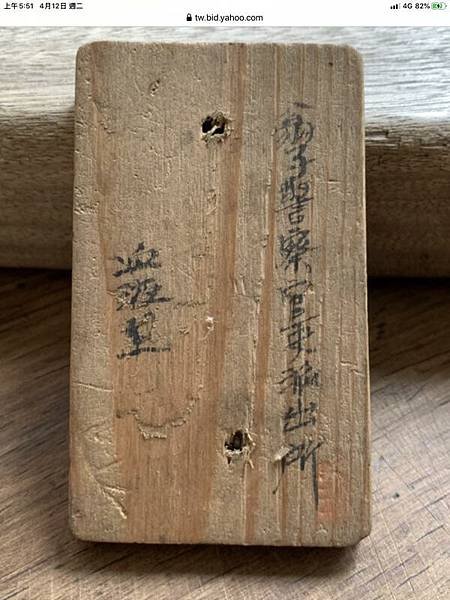 上午5:51 4月12日 週二
4G 82%
tw.bid.yahoo.com
子警察官吏派出所